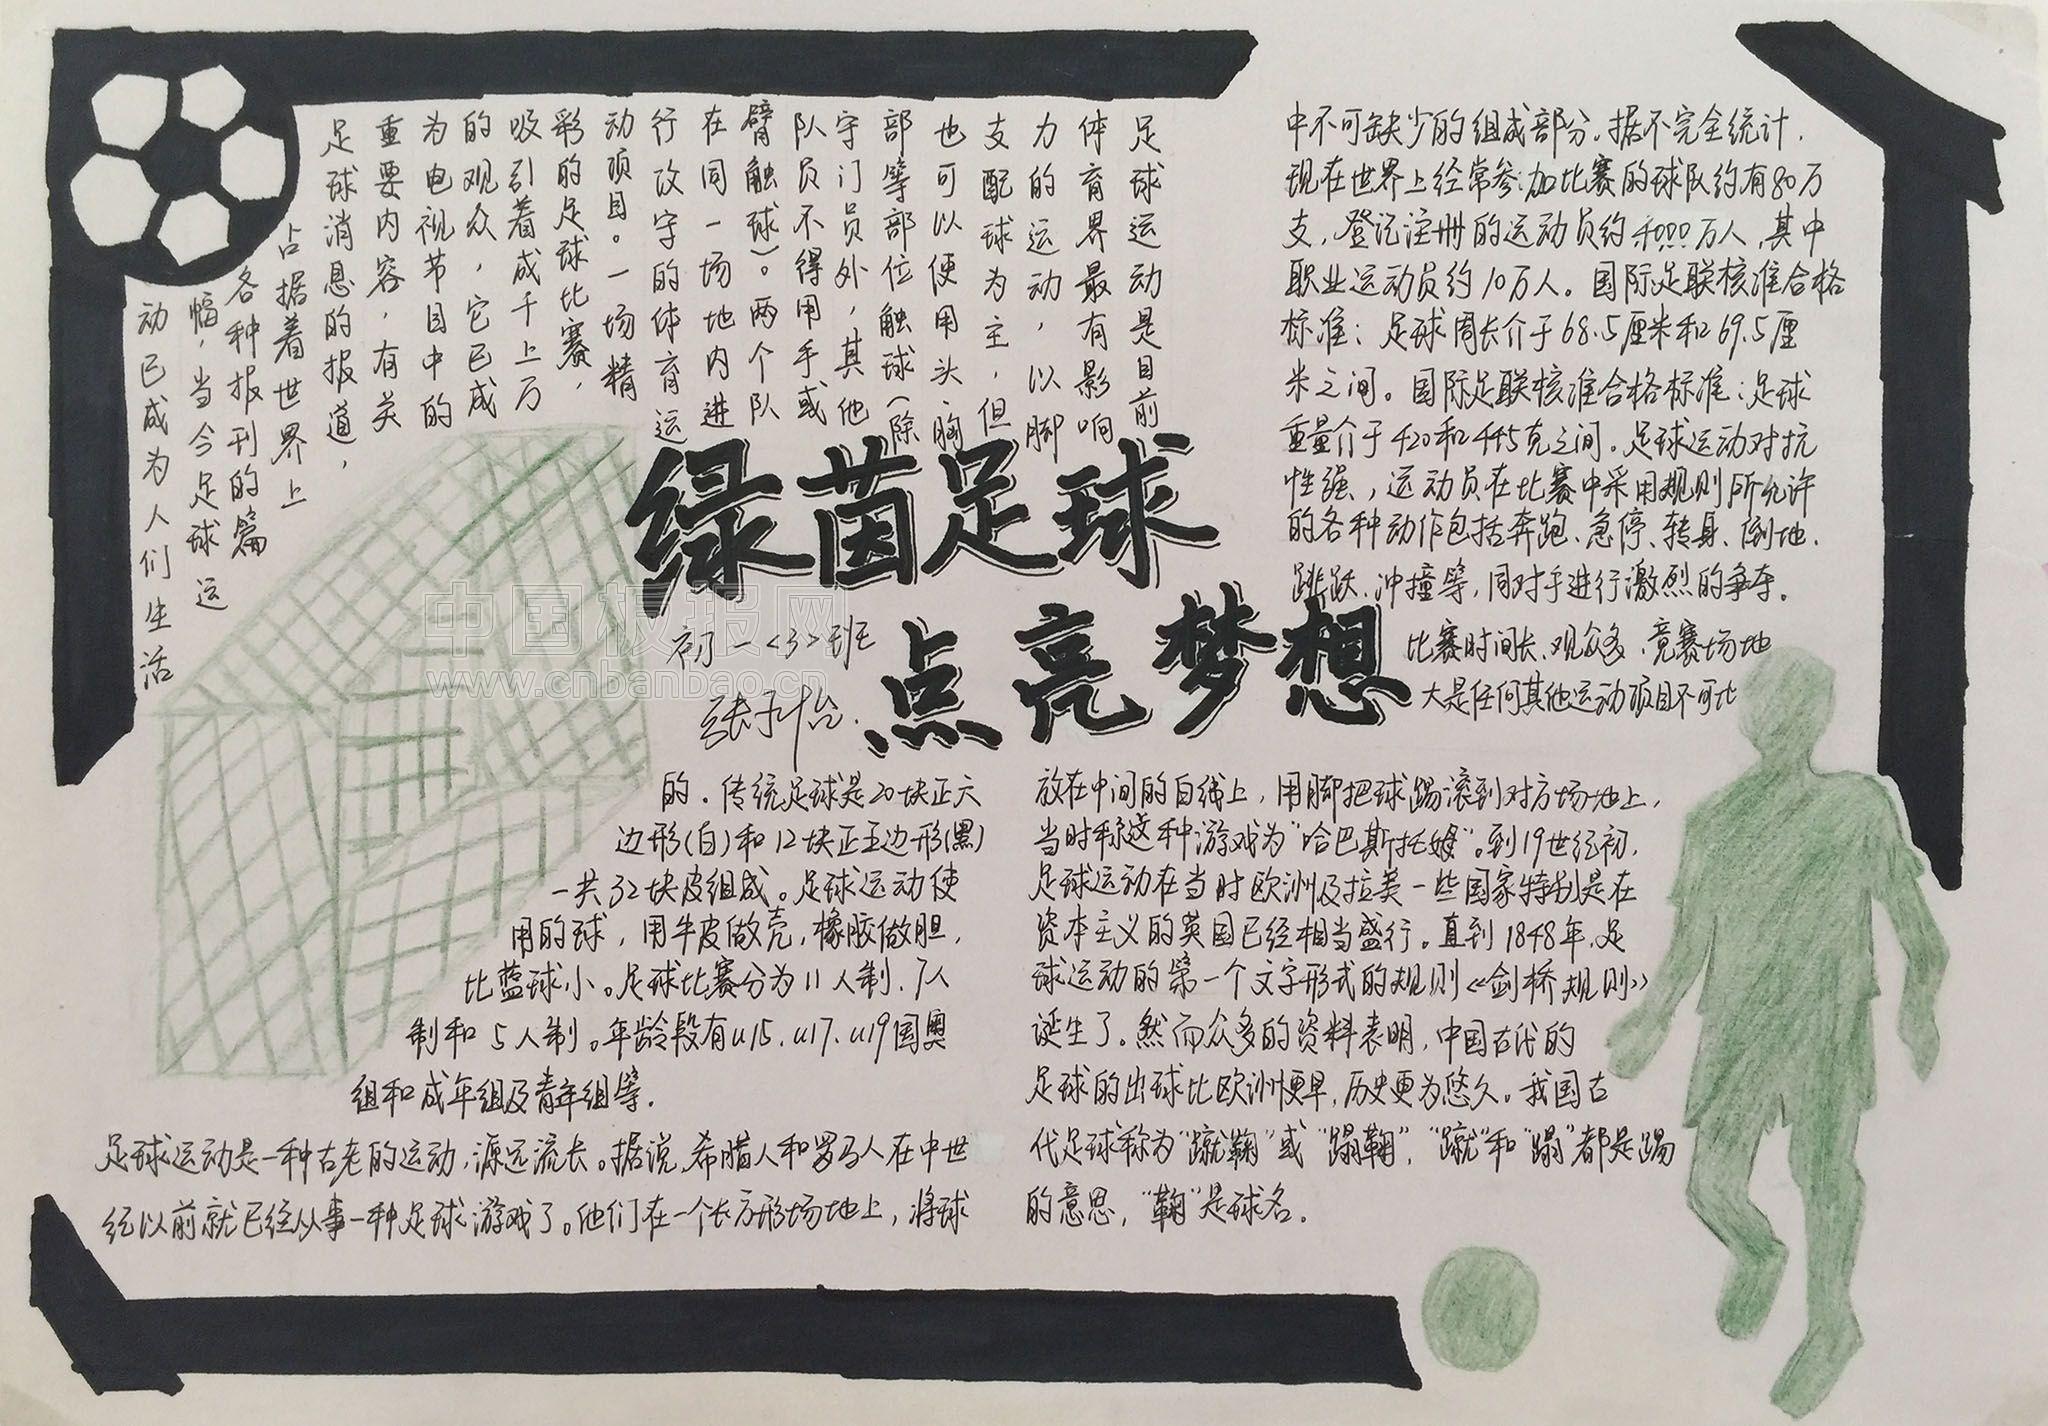 足球运动是目前
体育界最有影响
力的运动，以脚
支配球为主，但
也可以使用头、胸
部等部位触球（除
守门员外，其他
队员不得用手或
臂触球）。两个队
在同一场地内进
行攻守的体育运
动项目。一场精
彩的足球比赛，
吸引着成千上万
的观众，它已成
为电视节目中的
重要内容，有关
足球消息的报道，
占据着世界上
各种报刊的篇
幅，当今足球运
动已成为人们生活
中不可缺少的组成部分。据不完全统计，
现在世界上经常参加比赛的球队约有80万
支，登记注册的运动员约4000万人，其中
职业运动员约10万人。国际足联核准合格
标准：足球周长介于68.5厘米和69.5厘
米之间。国际足联核准合格标准：足球
重量介于420和445克之间。足球运动对抗
性强，运动员在比赛中采用规则所允许
的各种动作包括奔跑、急停、转身、倒地、
跳跃、冲撞等，同对手进行激烈的争夺。
比赛时间长、观众多、竞赛场地
大是任何其他运动项目不可比
绿茵足球
点亮梦想
初一<3>班
张子怡.
的。传统足球是20块正六
边形(白)和12块正五边形(黑)
一共32块皮组成。足球运动使
用的球，用牛皮做壳，橡胶做胆，
比蓝球小。足球比赛分为11人制、7人
制和5人制。年龄段有u15、u17、u19国奥
组和成年组及青年组等.
足球运动是一种古老的运动，源远流长。据说，希腊人和罗马人在中世
纪以前就已经从事一种足球游戏了。他们在一个长方形场地上，将球
放在中间的白线上，用脚把球踢滚到对方场地上，
当时称这种游戏为“哈巴斯托姆”。到19世纪初，
足球运动在当时欧洲及拉美一些国家特别是在
资本主义的英国已经相当盛行。直到1848年，足
球运动的第一个文字形式的规则《剑桥规则》
诞生了。然而众多的资料表明，中国古代的
足球的出球比欧洲更早，历史更为悠久。我国古
代足球称为“蹴鞠”或“蹋鞠”，“蹴”和“蹋”都是踢
的意思，“鞠”是球名.
中国板报网
www.cnbanbao.cn